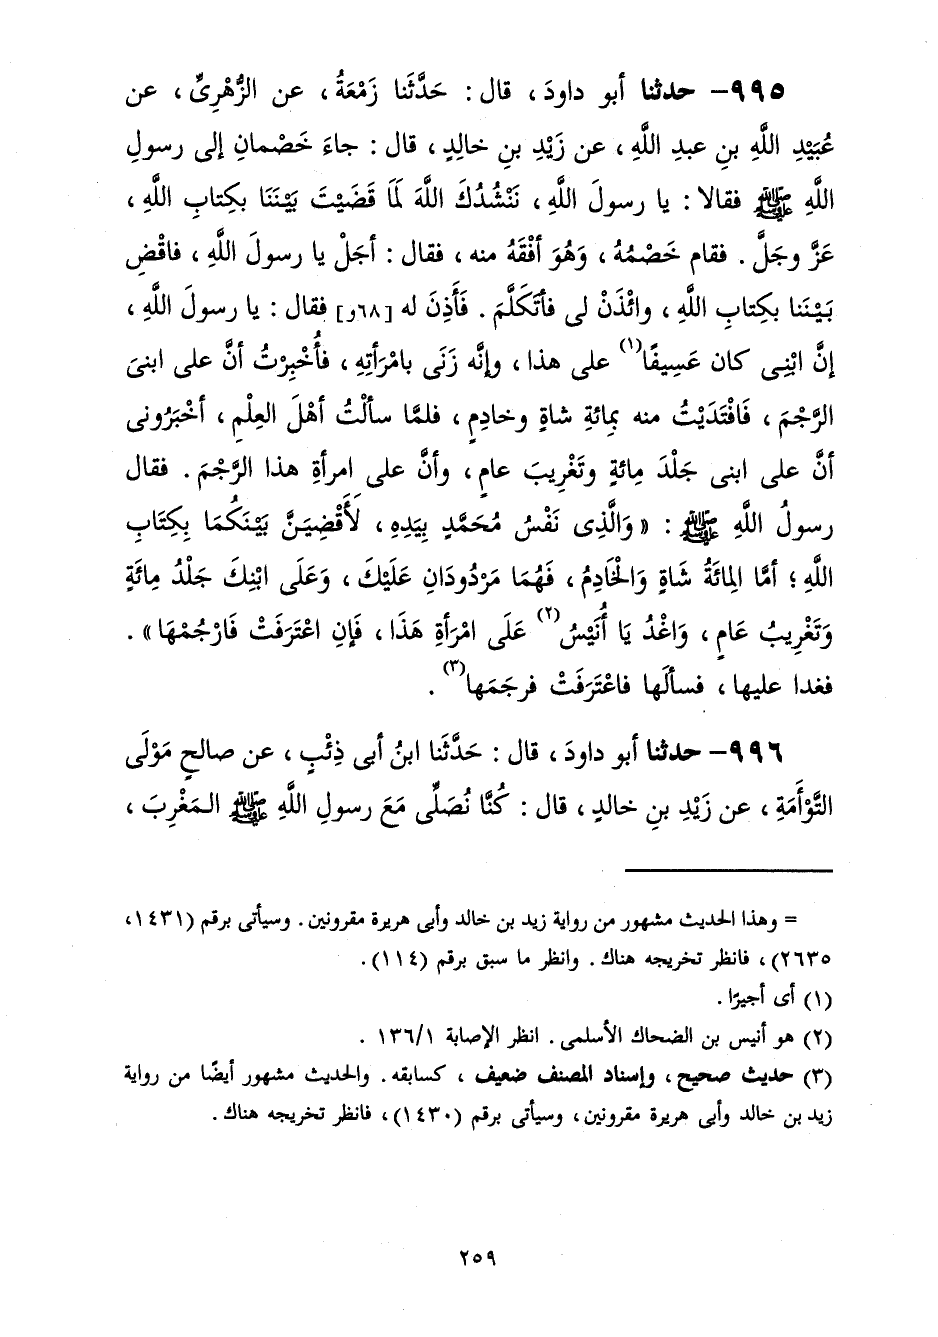 ٩٩٥- حدثنا أبو داودَ ، قال : حَدَّثَنا زَمْعَةُ ، عن الزُّهْرِىِّ ، عن
عُبَيْدِ اللَّهِ بنِ عبدِ اللَّهِ ، عن زَيْدِ بنِ خالِدٍ ، قال : جاءَ خَصْمانِ إلى رسولِ
اللَّهِ ﷺ فقالا : يا رسولَ اللَّهِ ، نَنْشُدُكَ اللَّهَ لَمَا قَضَيْتَ بَيْنَنَا بكِتابِ اللَّهِ ،
عَزَّ وجَلَّ . فقام خَصْمُهُ ، وَهُوَ أفْقَهُ منه ، فقال : أجَلْ يا رسولَ اللَّهِ ، فاقْضِ
بَيْنَنا بكِتابِ اللَّهِ ، وائْذَنْ لى فأتَكَلَّمَ . فَأَذِنَ له [٦٨و] فقال : يا رسولَ اللَّهِ ،
إنَّ ابْنِى كان عَسِيفًا(١) على هذا ، وإنَّه زَنَى بامْرَأتِهِ ، فأُخْبِرْتُ أنَّ على ابنىَ
الرَّجْمَ ، فَافْتَدَيْتُ منه بمِائةِ شاةٍ وخادِمٍ ، فلمَّا سألْتُ أهْلَ العِلْمِ ، أخْبَرُونى
أنَّ على ابنى جَلْدَ مِائةٍ وتَغْرِيبَ عامٍ ، وأنَّ على امرأةِ هذا الرَّجْمَ . فقال
رسولُ اللَّهِ ﷺ : « وَالَّذِى نَفْسُ مُحَمَّدٍ بِيَدِهِ ، لَأَقْضِيَنَّ بَيْنَكُمَا بِكِتَابِ
اللَّهِ ؛ أمَّا المِائَةُ شَاةٍ وَالْخَادِمُ ، فَهُمَا مَرْدُودَانِ عَلَيْكَ ، وَعَلَى ابْنِكَ جَلْدُ مِائَةٍ
وَتَغْرِيبُ عَامٍ ، وَاغْدُ يَا أُنَيْسُ(٢) عَلَى امْرَأةِ هَذَا ، فَإِنِ اعْتَرَفَتْ فَارْجُمْهَا » .
فغدا عليها ، فسألَها فاعْتَرَفَتْ فرجَمَها(٣) .
٩٩٦- حدثنا أبو داودَ ، قال : حَدَّثَنا ابنُ أبى ذِئْبٍ ، عن صالحٍ مَوْلَى
التَّوْأَمَةِ ، عن زَيْدِ بنِ خالدٍ ، قال : كُنَّا نُصَلِّى مَعَ رسولِ اللَّهِ ﷺ المَغْرِبَ ،
= وهذا الحديث مشهور من رواية زيد بن خالد وأبى هريرة مقرونين . وسيأتى برقم (١٤٣١،
٢٦٣٥) ، فانظر تخريجه هناك . وانظر ما سبق برقم (١١٤) .
(١) أى أجيرًا .
(٢) هو أنيس بن الضحاك الأسلمى . انظر الإصابة ١٣٦/١ .
(٣) حديث صحيح ، وإسناد المصنف ضعيف ، كسابقه . والحديث مشهور أيضًا من رواية
زيد بن خالد وأبى هريرة مقرونين ، وسيأتى برقم (١٤٣٠) ، فانظر تخريجه هناك .
٢٥٩